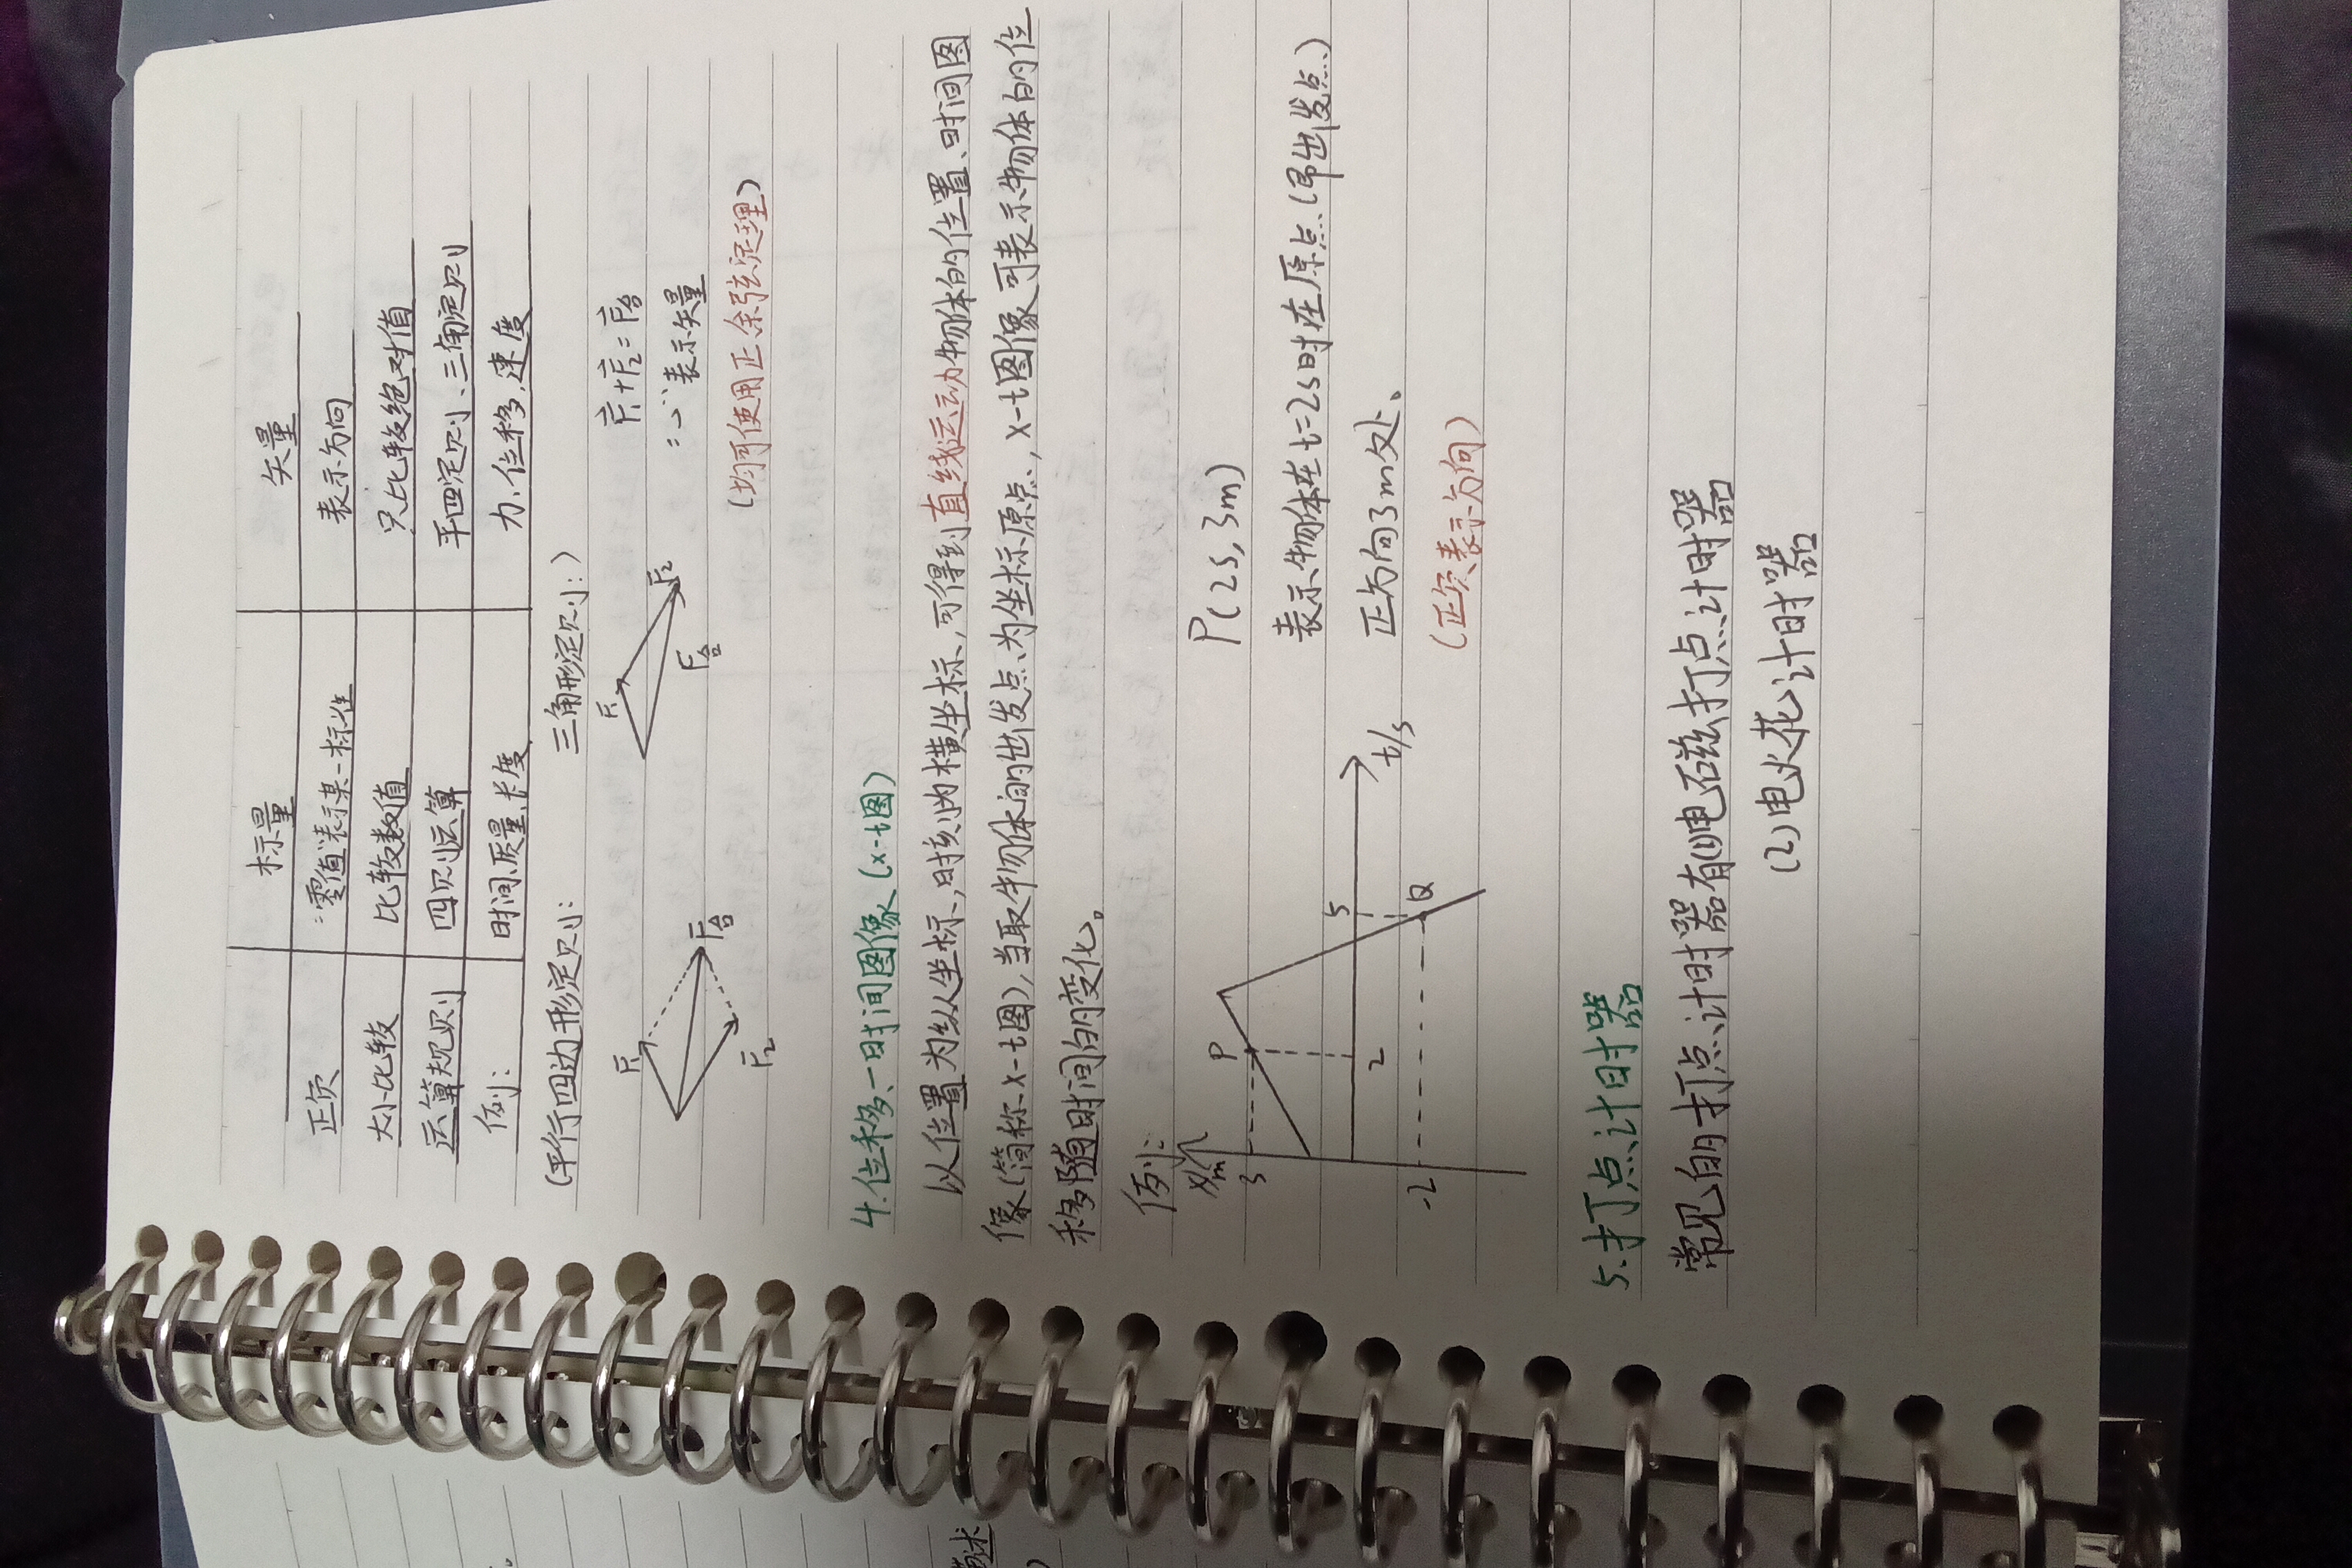 标量 矢量
正负 “零值”表示某一标准 表示方向
大小比较 比较数值 只比较绝对值
运算规则 四则运算 平四定则、三角定则
例: 时间、质量、长度 力、位移、速度
(平行四边形定则: 三角形定则:)
F₁ F合 F₂
F₁ F₂ F合
F₁+F₂=F合
“→”表示矢量
(均可使用正余弦定理)
4.位移一时间图像(x-t图)
以位置为纵坐标,时刻为横坐标,可得到直线运动物体的位置、时间图
像(简称x-t图),当取物体的出发点为坐标原点,x-t图像可表示物体的位
移随时间的变化。
例:
x/m
3 P
2 5 t/s
-2 Q
P(2s,3m)
表示物体在t=2s时在原点(即出发点)
正方向3m处、
(正负表示方向)
5.打点计时器
常见的打点计时器有(1)电磁打点计时器
(2)电火花计时器